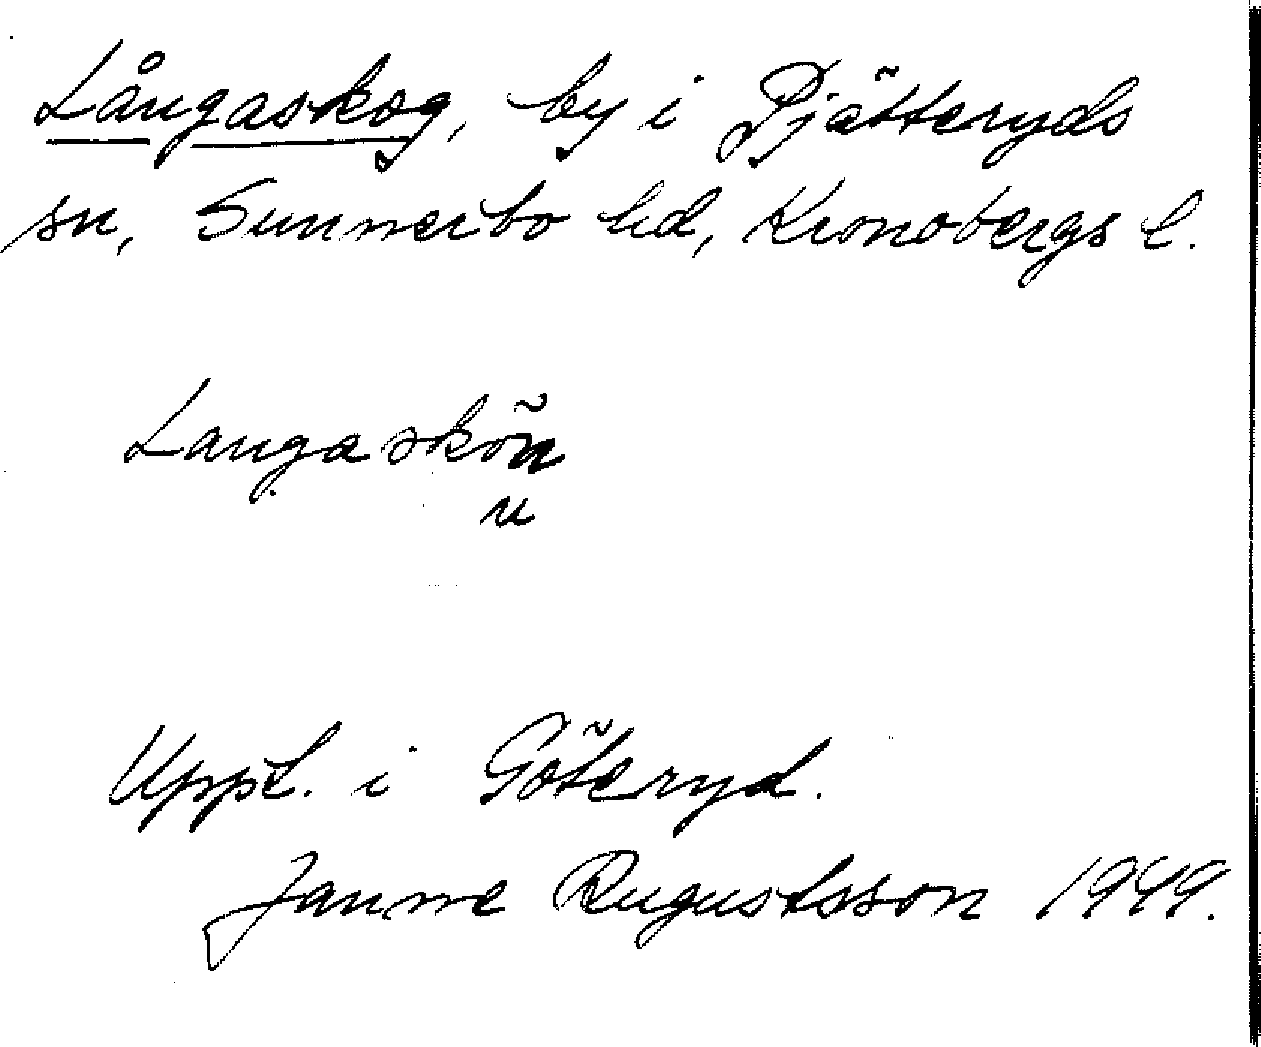 Långaskog, by i Pjätteryds
sn, Sunnerbo hd, Kronobergs l.
Langaskön
u
Uppt. i Göteryd.
Janne Augustsson 1949.